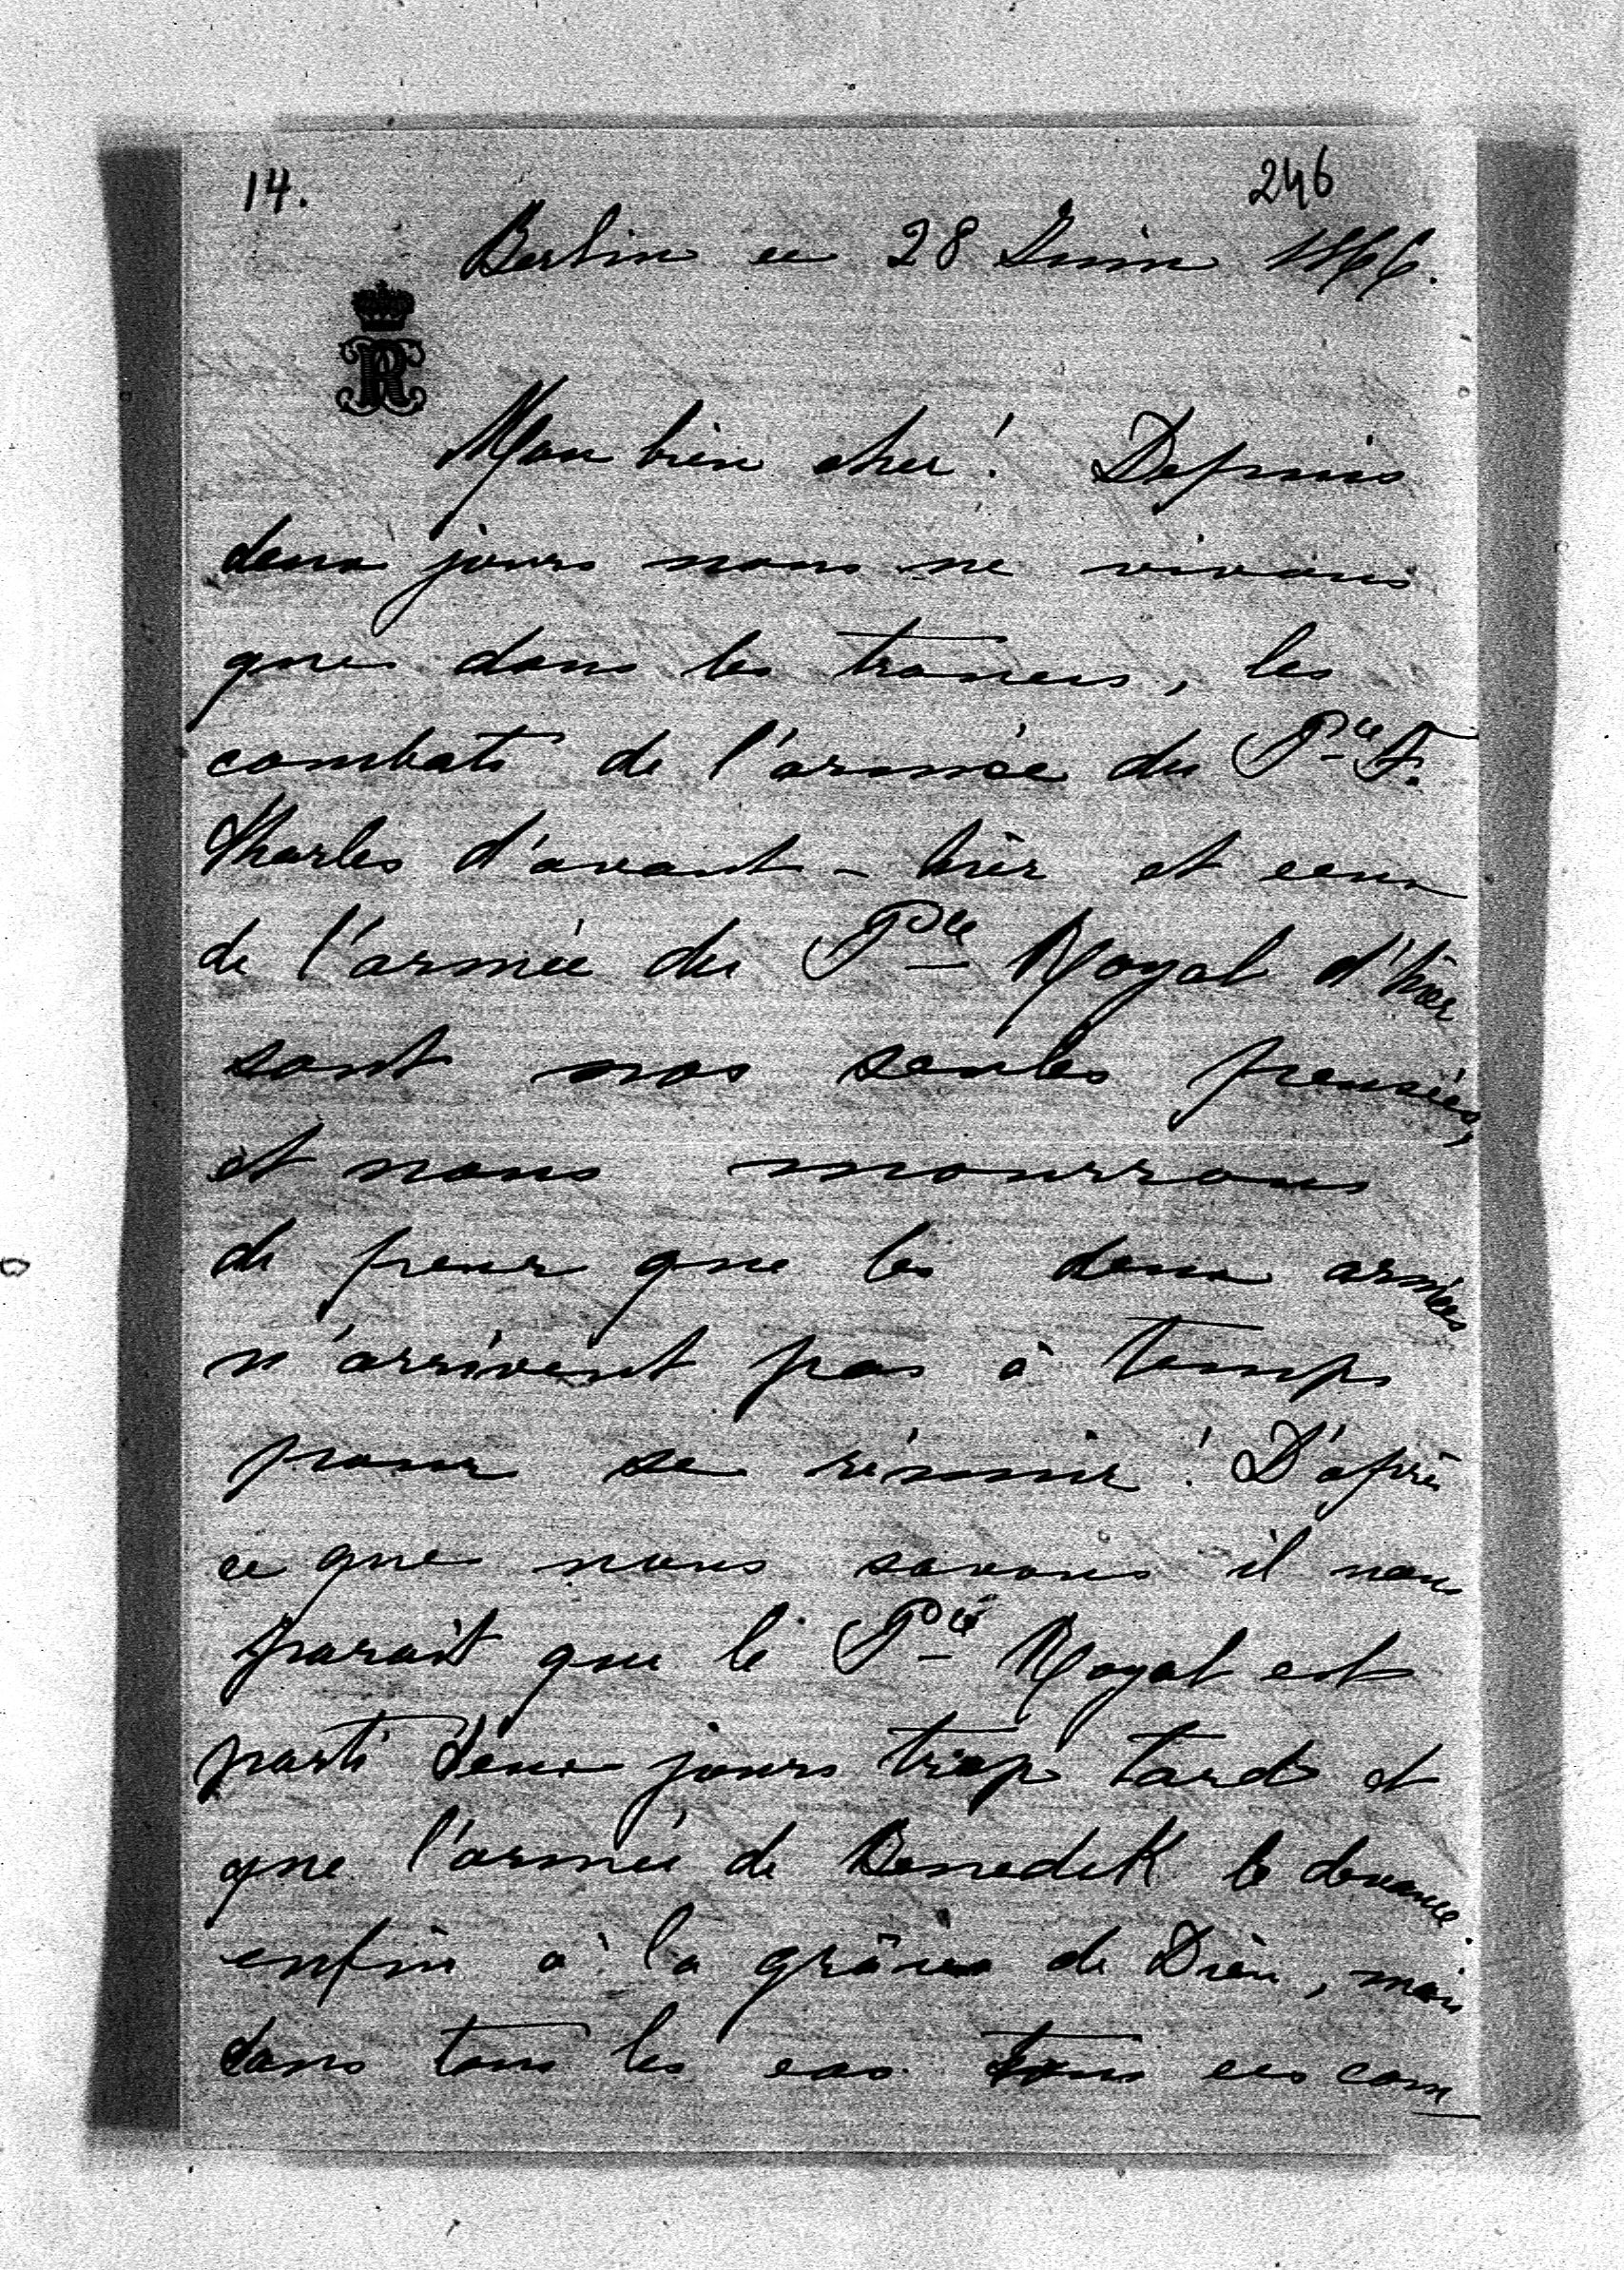 14.
246
Berlin ce 28 Juin 1866.
Mon bien cher! Depuis
deux jours nous ne vivons
que dans les transes, les
combats de l'armée du Pce F.
Charles d'avant-hièr et ceux
de l'armée du Pce Royal d'hier
sont nos seules pensées,
et nous mourrons
de peur que les deux armées
n'arrivent pas à temps
pour se réunir! D'après
ce que nous savons il nous
parait que le Pce Royal est
parti deux jours trop tard et
que l'armée de Benedek le devance.
enfin à la grâce de Dieu, mais
dans tous les cas tous ces com